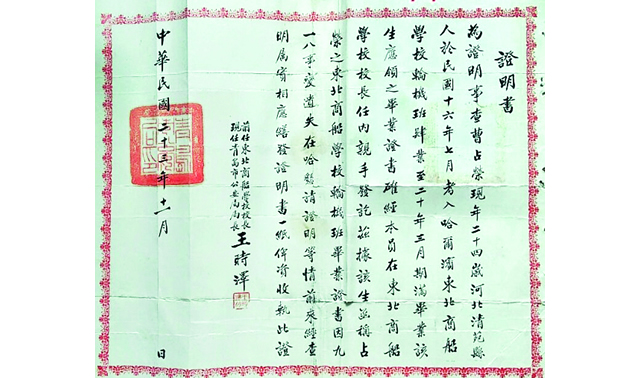 證明書
為證明事查曹占榮現年二十四歲河北清苑縣
人於民國十六年七月考入哈爾濱東北商船
學校輪機班肄業至二十年三月期滿畢業該
生應領之畢業證書確經本員在東北商船
學校校長任內親手發訖茲據該生並稱占
榮之東北商船學校輪機班畢業證書因九
一八事變遺失在哈懇請證明等情前來經查
明属實相應繕發證明書一紙俾資收執此證
前任東北商船學校校長
現任青島市公安局局長
王時澤
中華民國二十三年十一月 日